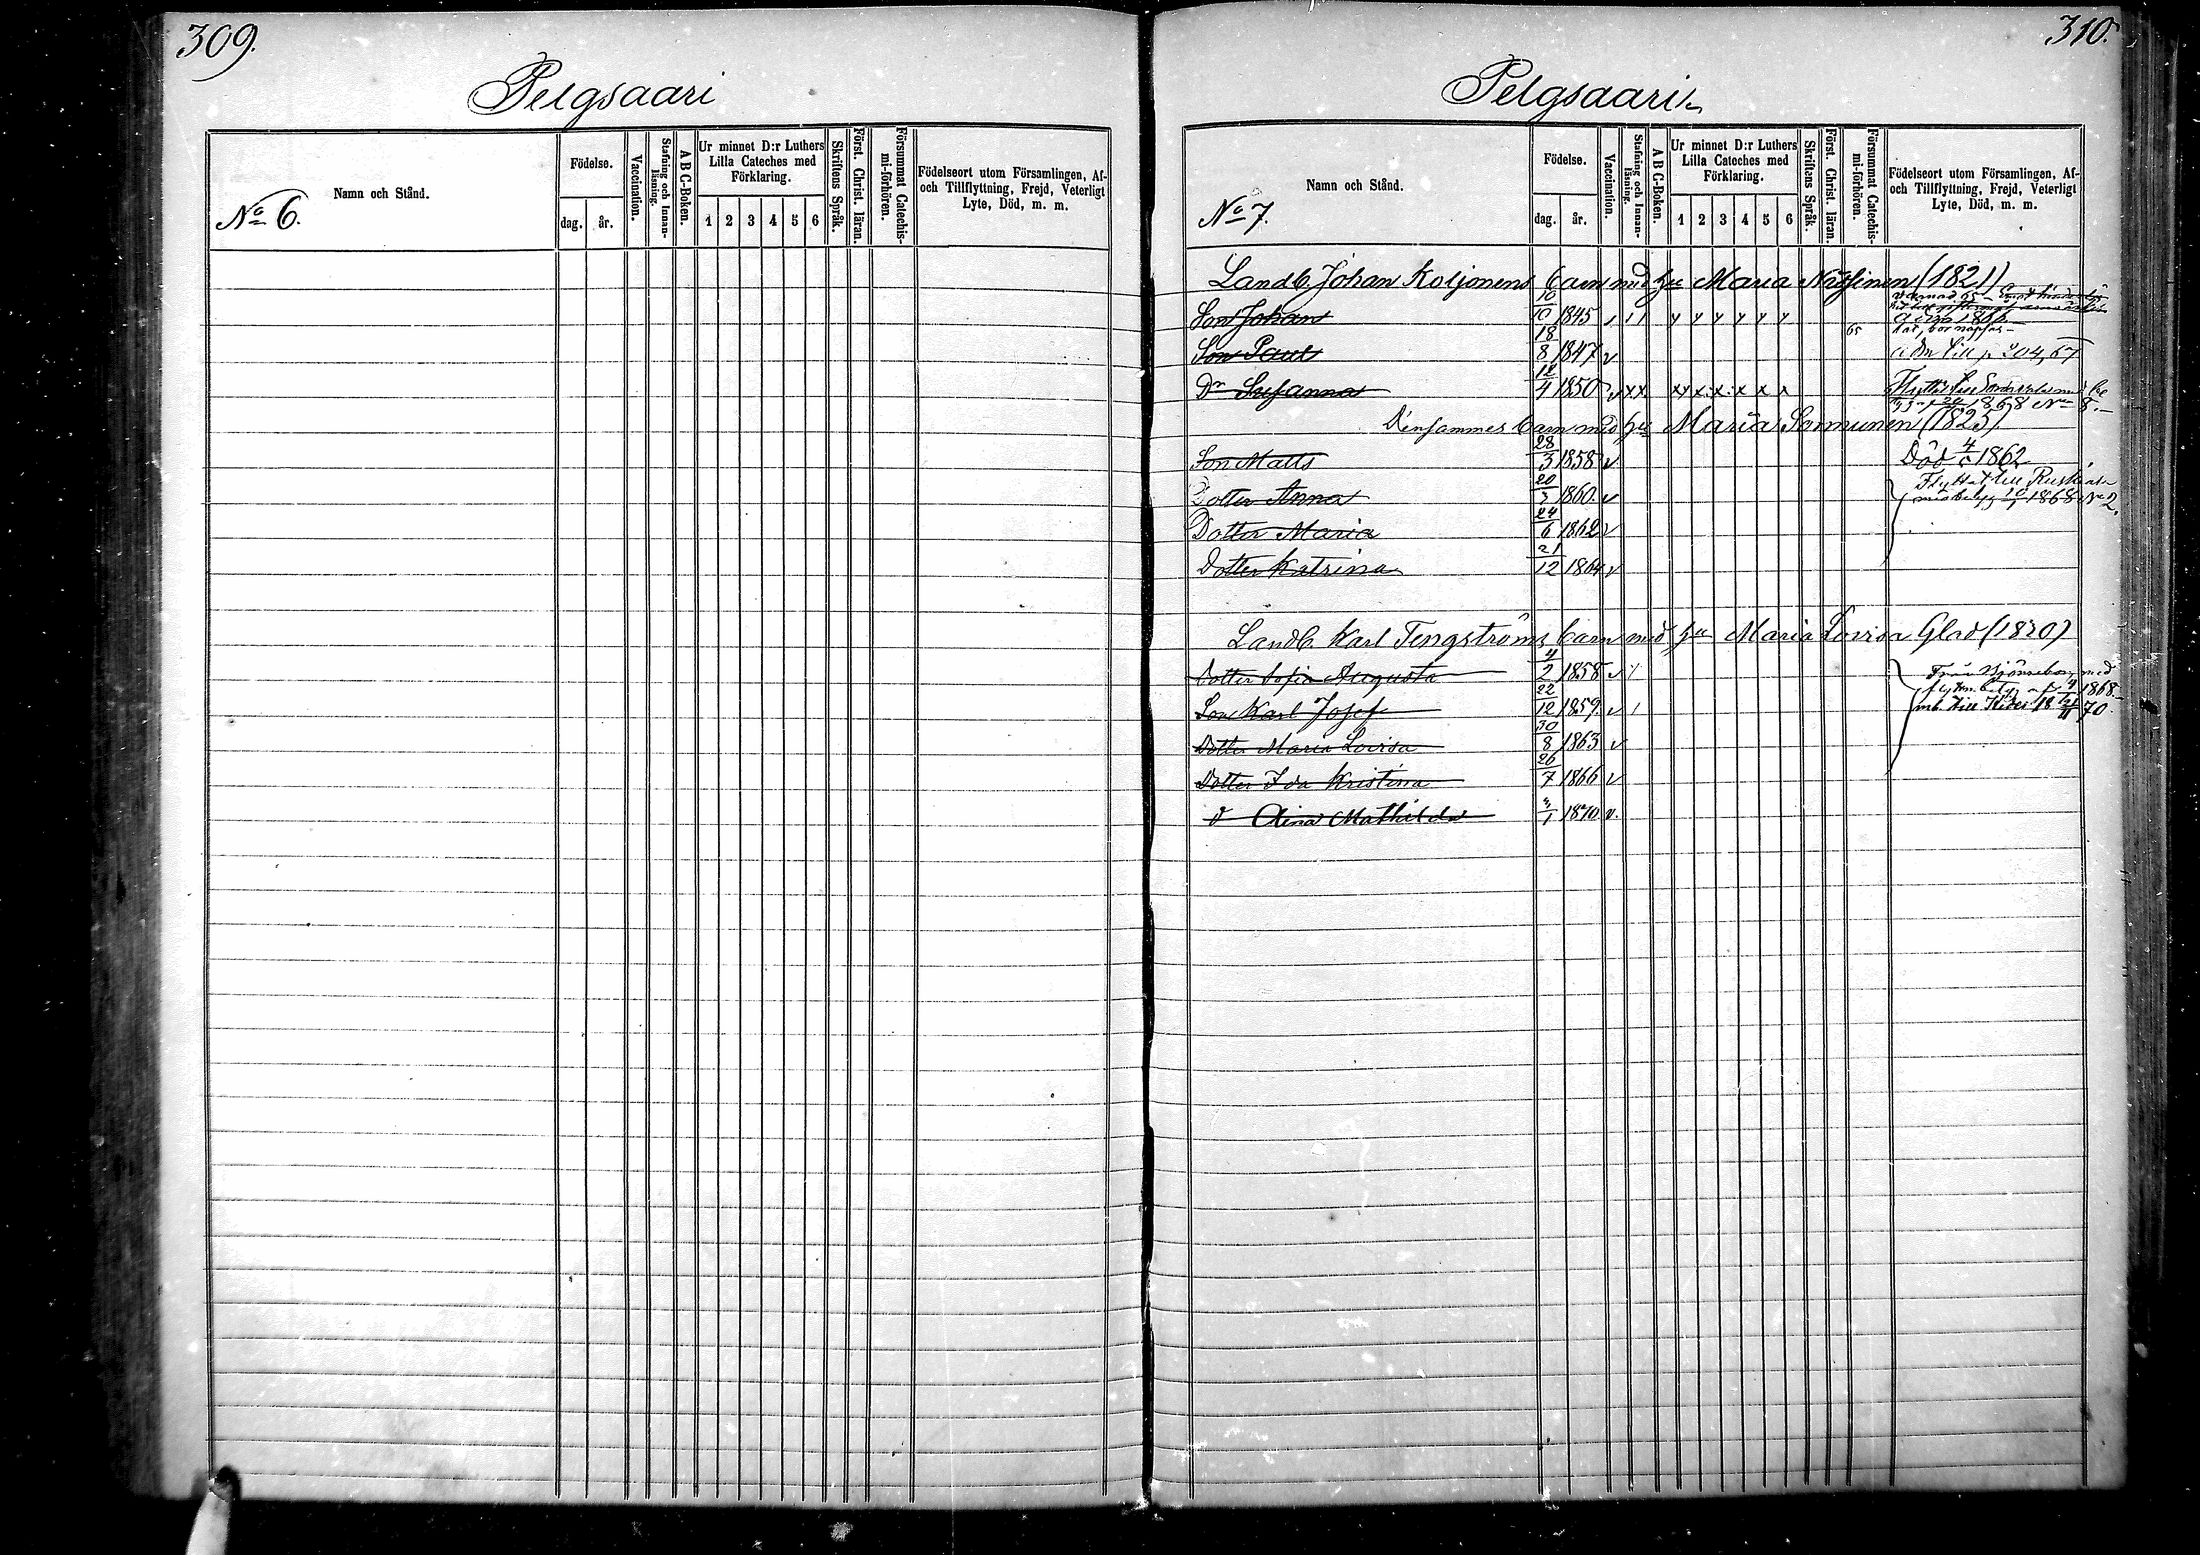 309.
Pelgsaari
No 6.
Namn och Stånd.
Födelse.
dag. år.
Vaccination.
Stafning och Innan-
läsning.
A B C-Boken.
Ur minnet D:r Luthers
Lilla Cateches med
Förklaring.
1 2 3 4 5 6
Skriftens Språk.
Först. Christ. läran.
Försummat Catechis-
mi-förhören.
Födelseort utom Församlingen, Af-
och Tillflyttning, Frejd, Veterligt
Lyte, Död, m. m.
310.
Pelgsaari
No 7.
Namn och Stånd.
Födelse.
dag. år.
Vaccination.
Stafning och Innan-
läsning.
A B C-Boken.
Ur minnet D:r Luthers
Lilla Cateches med
Förklaring.
1 2 3 4 5 6
Skriftens Språk.
Först. Christ. läran.
Försummat Catechis-
mi-förhören.
Födelseort utom Församlingen, Af-
och Tillflyttning, Frejd, Veterligt
Lyte, Död, m. m.
Landb. Johan Koljonens barn med hu Maria (1821)
Son Johan 10/10 1845
Son Paul 18/8 1847 v 65 till p 204, 67
Dr Susanna 12/4 1850 v x x x x x x x x 1868 No 8.
Densammes barn med hu Maria Sormunen (1823)
Son Matts 28/3 1858 v Död 1862
Dotter Anna 20/3 1860. v Flyttat till 1868 No 2.
Dotter Maria 24/6 1862 v
Dotter Katrina 21/12 1864 v
Landb. Karl Tengströms barn med hu Maria Lovisa Glad (1830)
Dotter Sofia Augusta 4/2 1858 v Från med
Son Karl Josef 22/12 1859. v 1868.
till 70.
Dotter Maria Lovisa 30/8 1863 v
Dotter Ida Kristina 26/7 1866 v
D Aina Mathilda 1870 v.